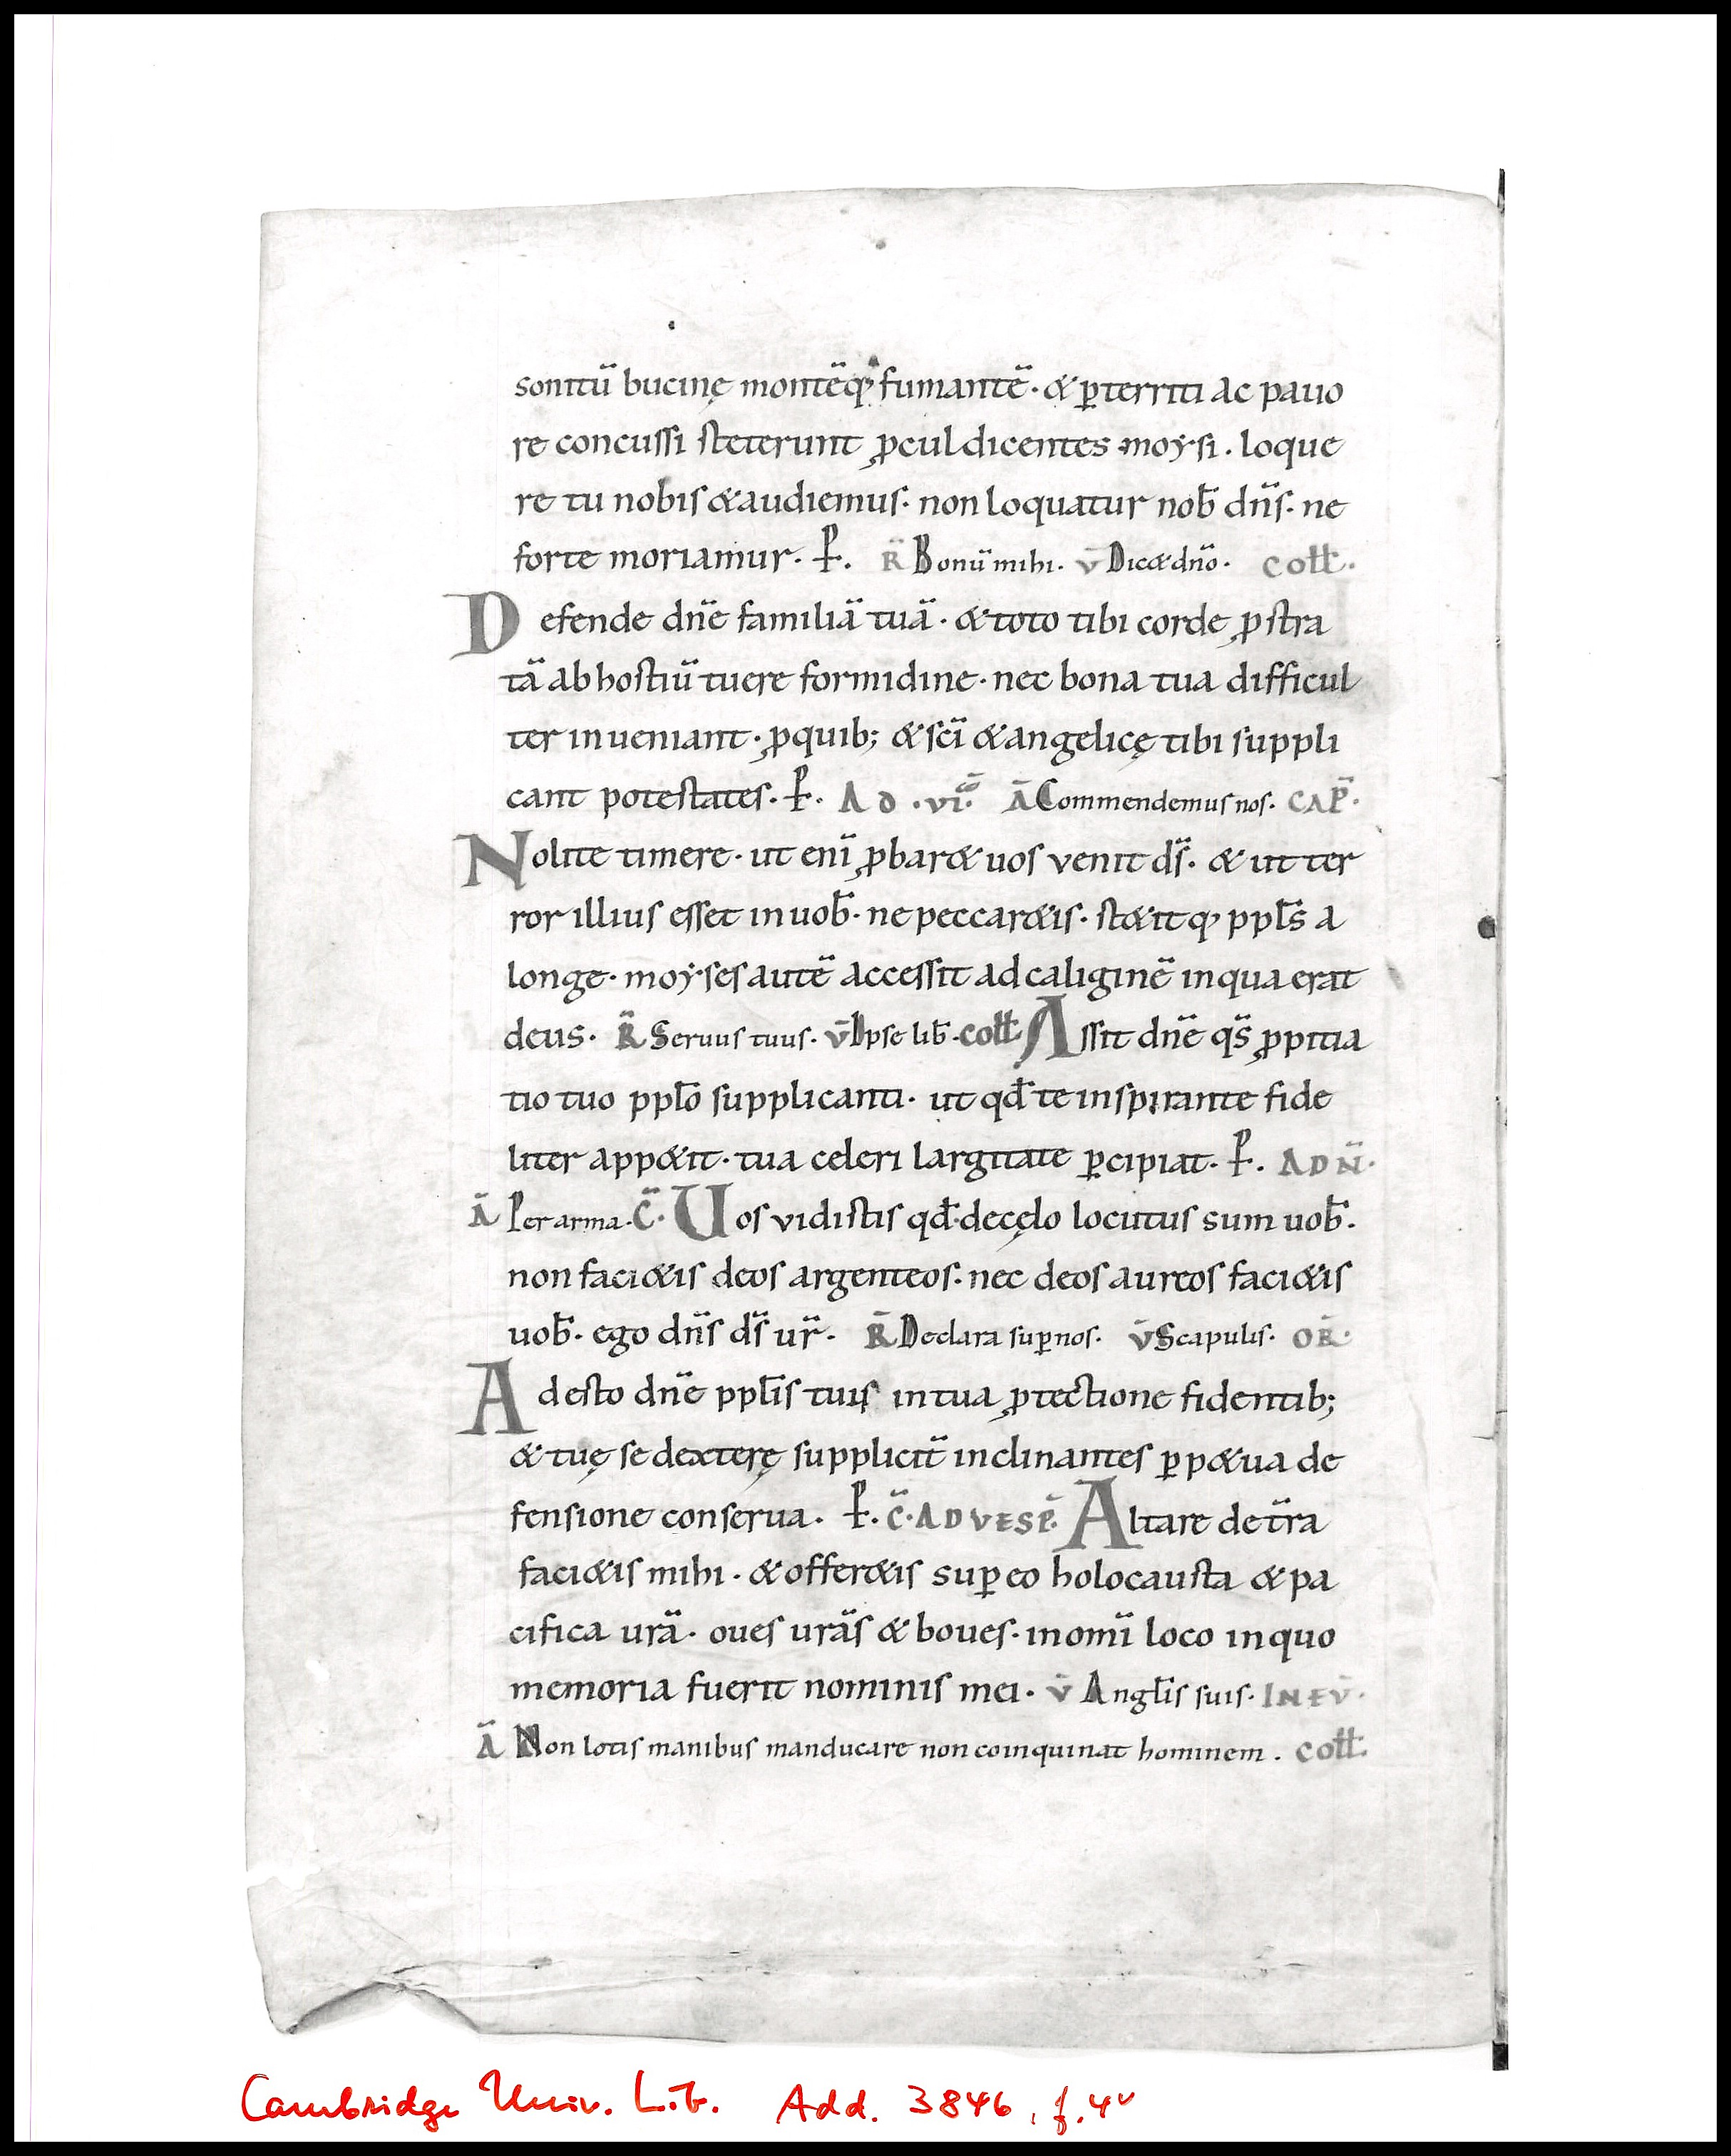 sonitū bucinę montēq; fumantē· & ꝑterriti ac pauo
re concussi steterunt ꝓcul dicentes moẏsi. loque
re tu nobis & audiemus· non loquatur nob̄ dn̄s· ne
forte moriamur· P̵. R̄ Bonū mihi. v̄ Dic& dn̄o. coll̄.
Defende dn̄e familiā tuā· & toto tibi corde ꝓstra
tā ab hostiū tuere formidine· nec bona tua difficul
ter inueniant· ꝓ quib; & sc̄i & angelicę tibi suppli
cant potestates· P̵. AD ·vi· Ā Commendemus nos. CAP̄·
Nolite timere· ut enī ꝓbar& uos venit ds̄· & ut ter
ror illius esset in uob̄· ne peccar&is· st&itq; ppls̄ a
longe· moẏses autē accessit ad caliginē in qua erat
deus· R̄ Seruus tuus. v̄ Ipse lib̄. coll̄ Assit dn̄e qs̄ ꝓpitia
tio tuo ppl̄o supplicanti· ut qd̄ te inspirante fide
liter app&it· tua celeri largitate ꝑcipiat· P̵. AD N̄·
Ā Per arma. C̄· Uos vidistis qd̄ de cęlo locutus sum uob̄.
non faci&is deos argenteos· nec deos aureos faci&is
uob̄· ego dn̄s ds̄ ur̄· R̄ Declara suꝑ nos. v̄ Scapulis. OR̄·
Adesto dn̄e ppl̄is tuis in tua ꝓtectione fidentib;
& tuę se dexterę supplicit̄ inclinantes ꝑp&ua de
fensione conserua· P̵. C̄· AD VESP̄· Altare de t̄ra
faci&is mihi· & offer&is suꝑ eo holocausta & pa
cifica ur̄a· oues ur̄as & boues· in omī loco in quo
memoria fuerit nominis mei· v̄ Angl̄is suis. IN EV̄·
Ā Non lotis manibus manducare non coinquinat hominem. coll̄.
Cambridge Univ. Lib. Add. 3846, f. 4v